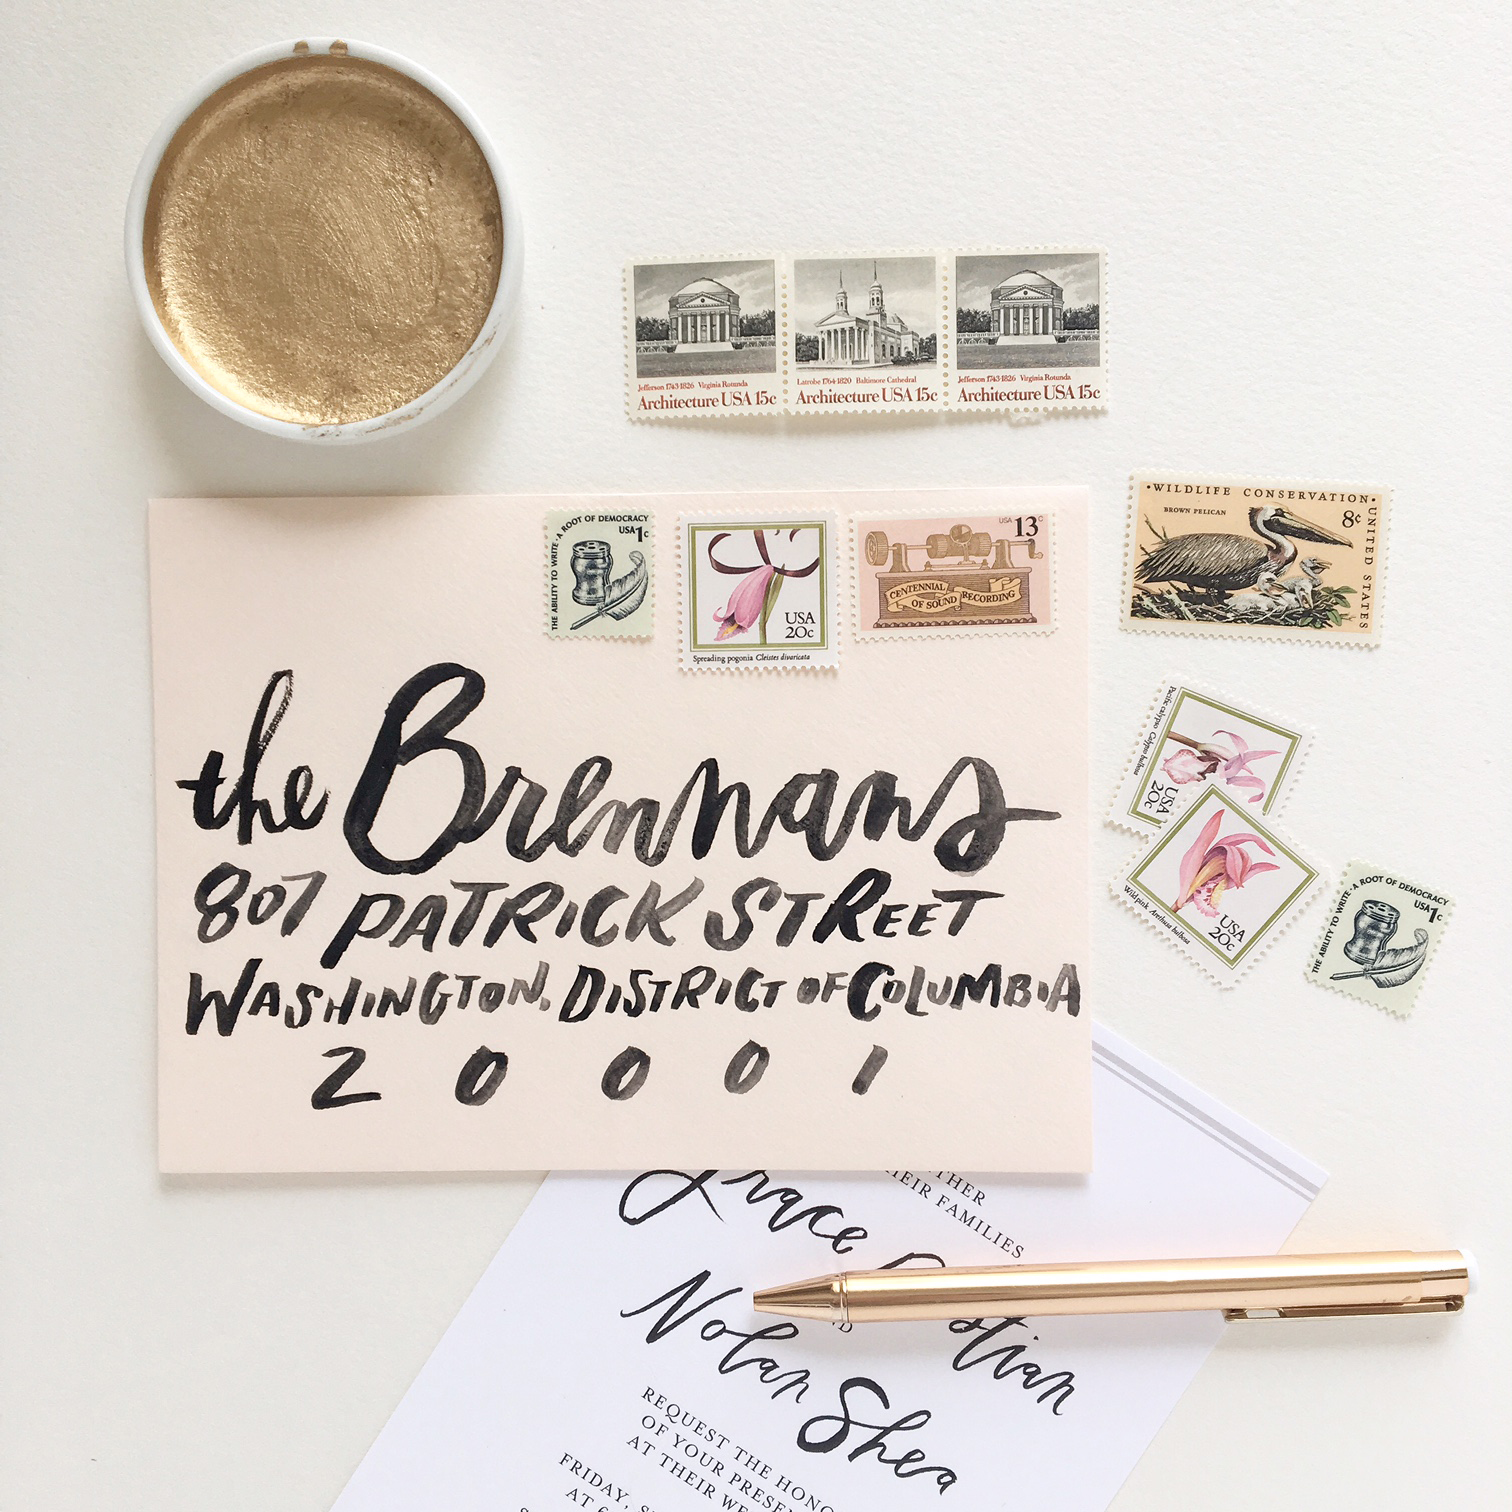 Jefferson 1743-1826 Virginia Rotunda
Architecture USA 15c
Latrobe 1764-1820 Baltimore Cathedral
Architecture USA 15c
Jefferson 1743-1826 Virginia Rotunda
Architecture USA 15c
THE ABILITY TO WRITE · A ROOT OF DEMOCRACY
USA 1c
USA
20c
Spreading pogonia Cleistes divaricata
USA 13c
CENTENNIAL
OF SOUND RECORDING
· WILDLIFE CONSERVATION · UNITED STATES
BROWN PELICAN
8¢
the Brennans
807 PATRICK STREET
WASHINGTON, DISTRICT OF COLUMBIA
20001
Pacific calypso Calypso bulbosa
USA
20c
Wild pink Arethusa bulbosa
USA
20c
THE ABILITY TO WRITE · A ROOT OF DEMOCRACY
USA 1c
FAMILIES
Grace
Nolan Shea
REQUEST THE
OF YOUR
AT THEIR
FRIDAY,
AT